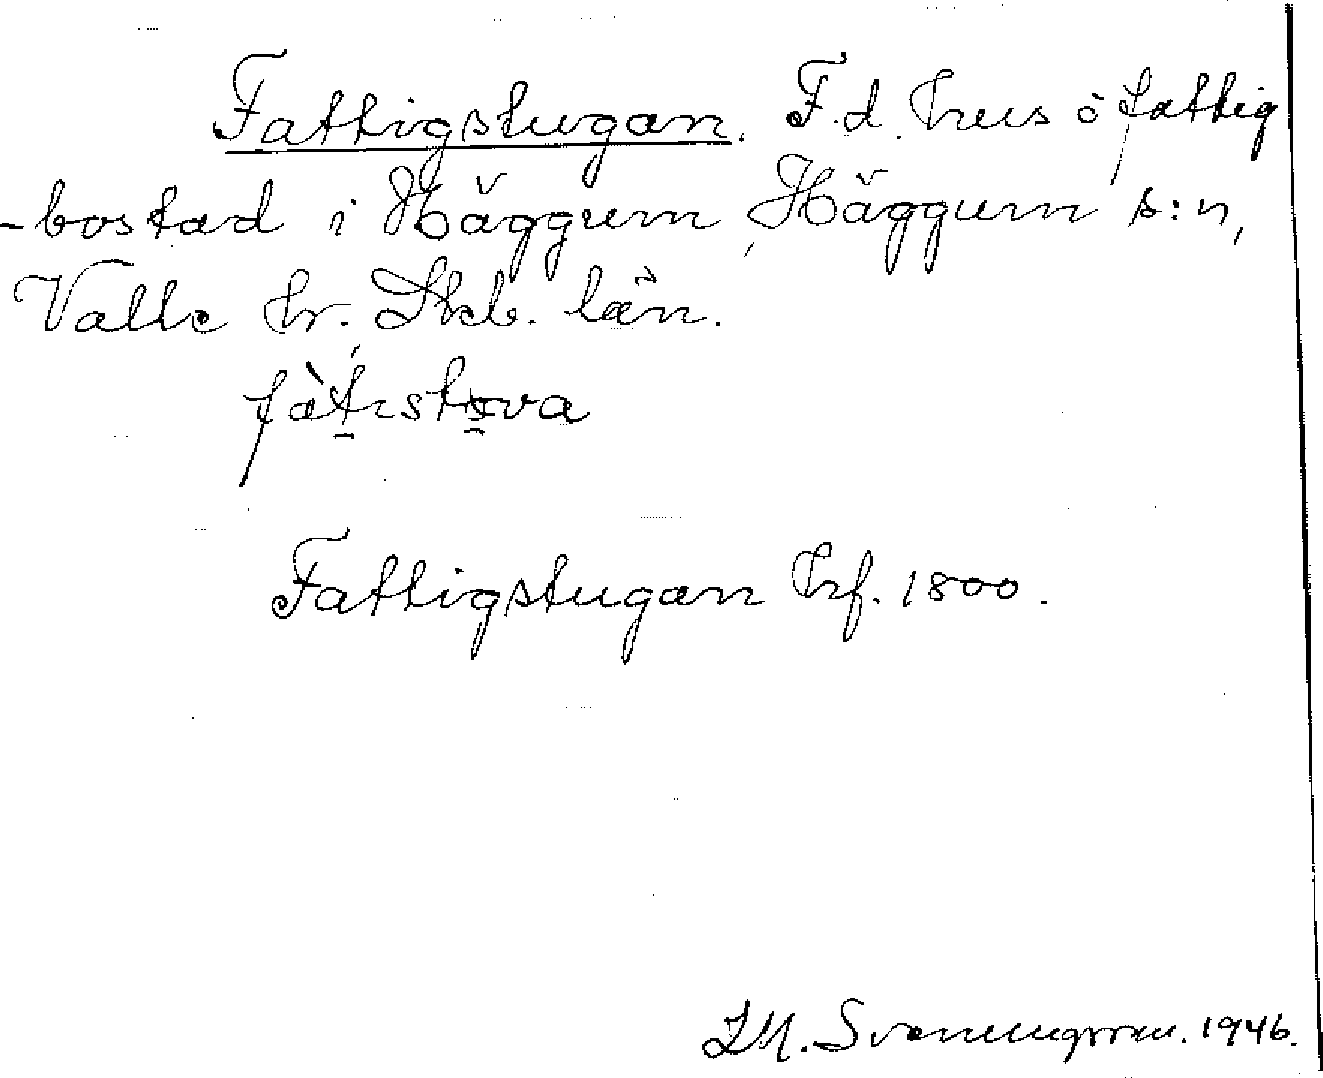 Fattigstugan. F.d. hus o fattig
-bostad i Häggum, Häggum s:n,
Valle hr. Skb. län.
fàtistova
Fattigstugan hf. 1800.
1946.